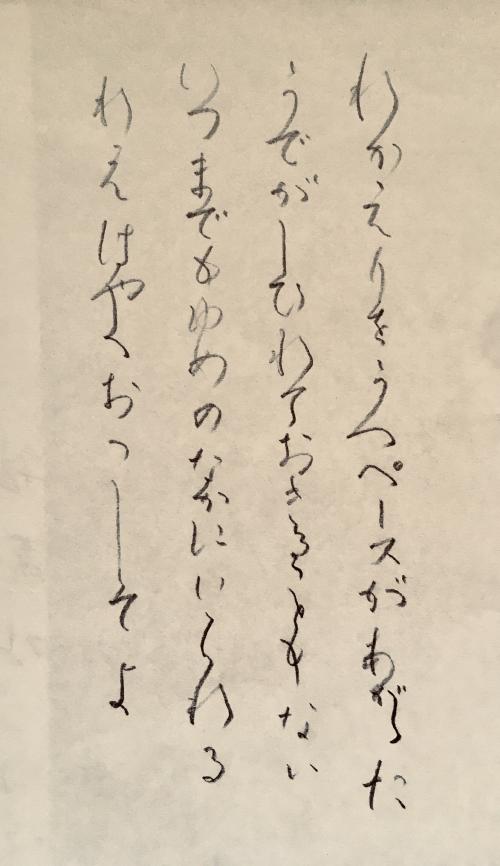 ねがえりをうつペースがあがった
うでがしびれておきることもない
いつまでもゆめのなかにいられる
ねえはやくおっこちてよ